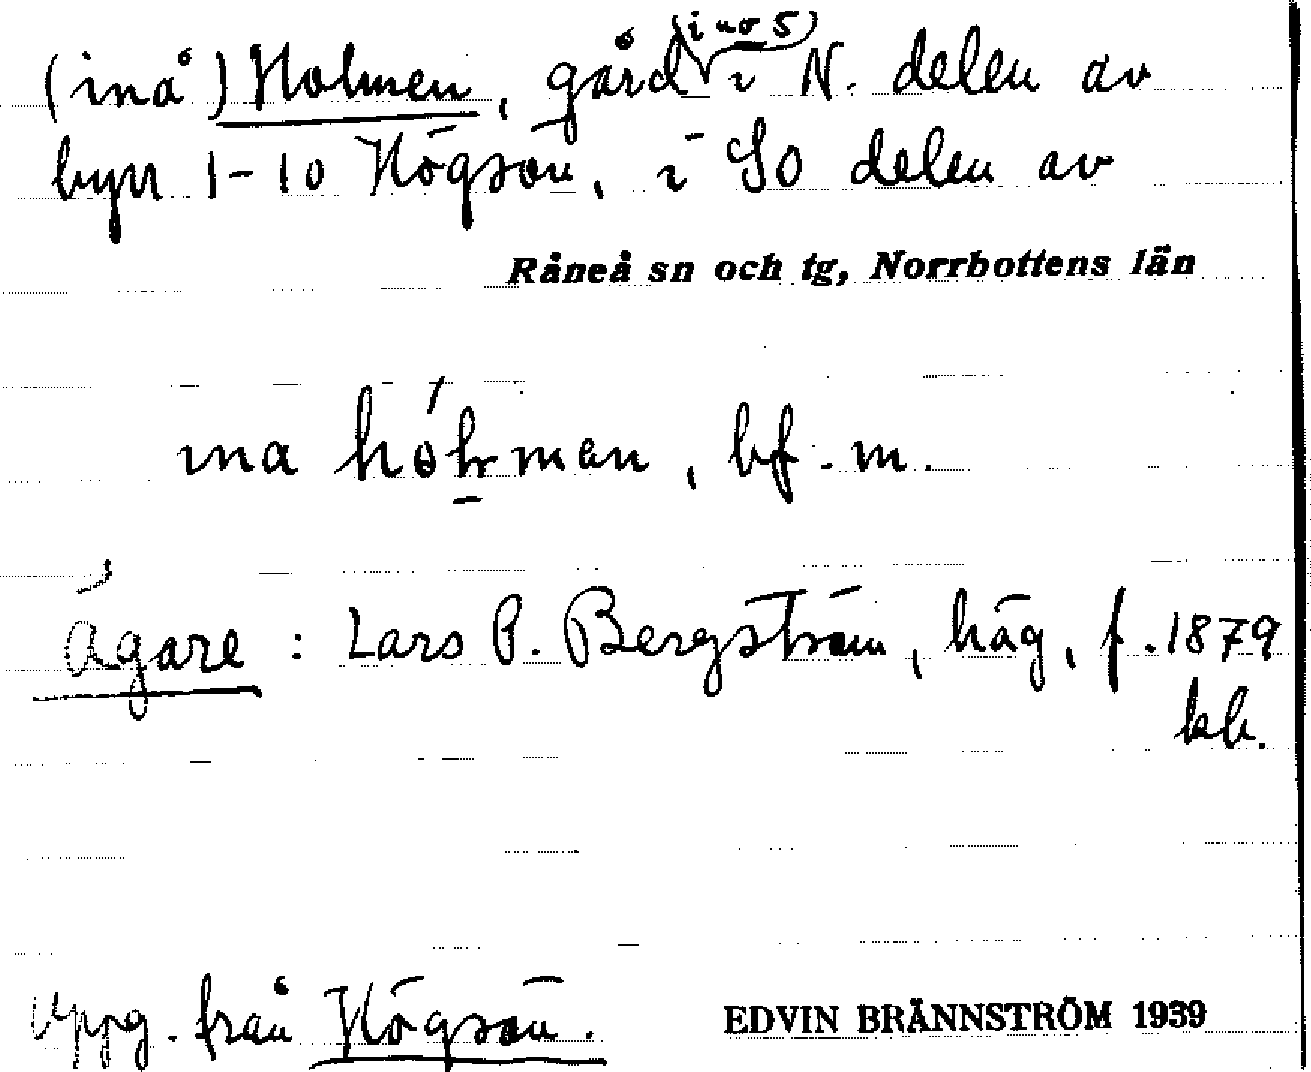 (i no 5)
(inå) Holmen, gård i N. delen av
byn 1-10 Högsön, i SO delen av
Råneå sn och tg, Norrbottens län
ina hóḻman, bf. m.
Ägare : Lars P. Bergström, häg, f. 1879
kb.
Uppg. från Högsön.
EDVIN BRÄNNSTRÖM 1939